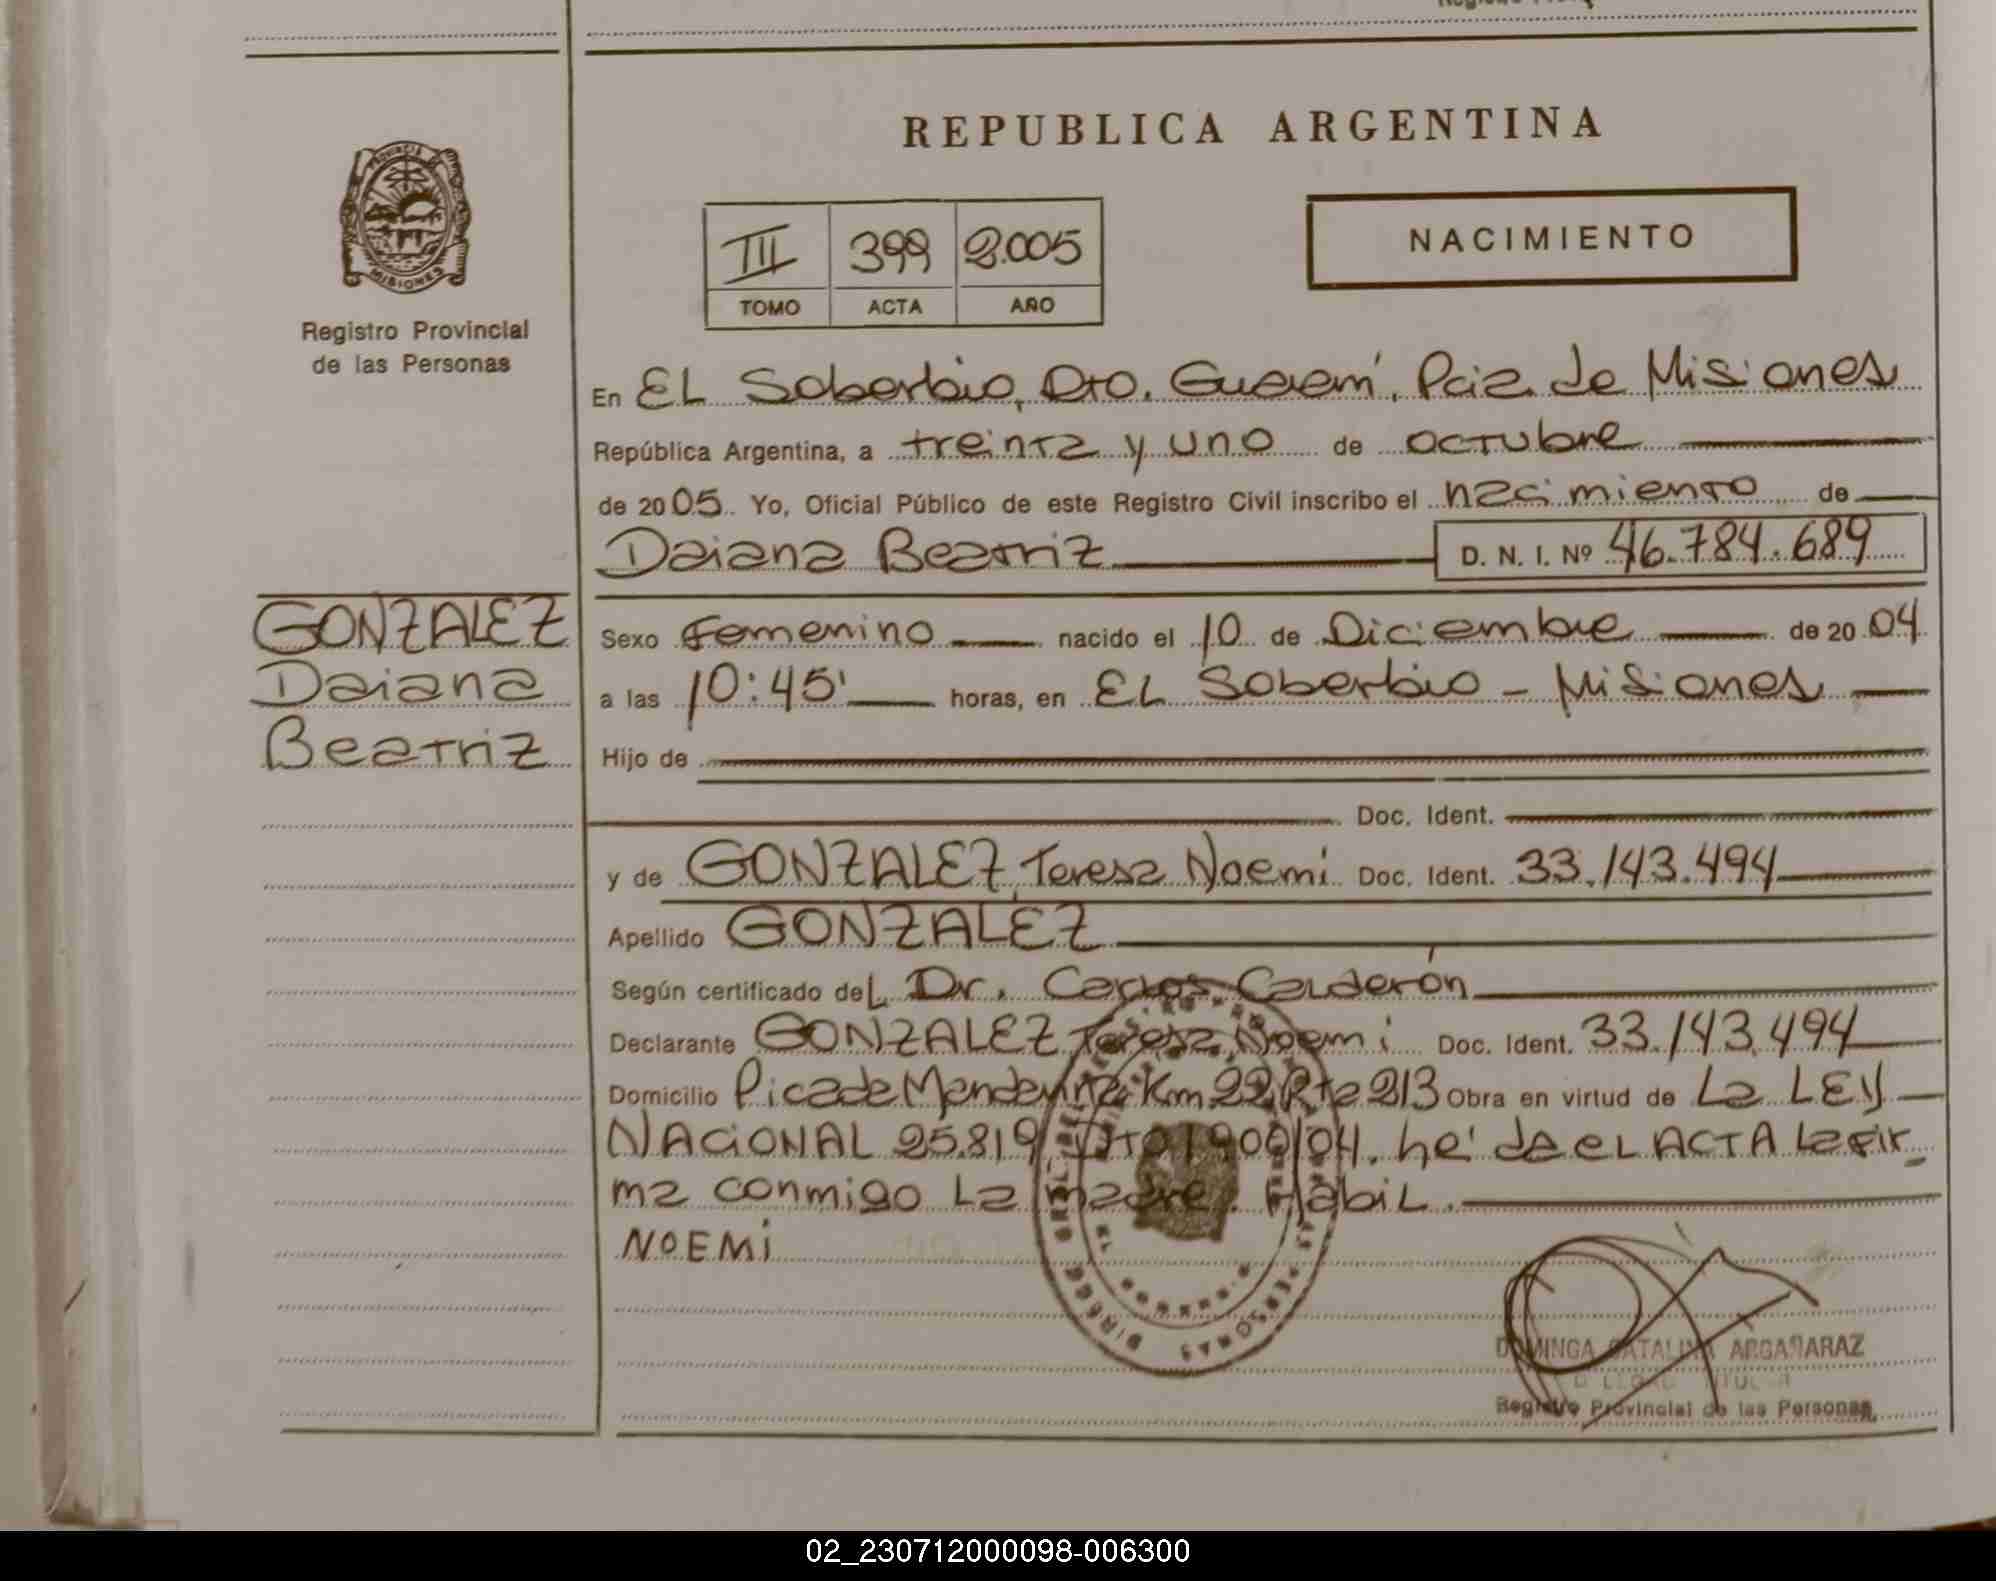 REPUBLICA ARGENTINA
PROVINCIA DE
MISIONES
Registro Provincial
de las Personas
III 399 2.005
TOMO ACTA AÑO
NACIMIENTO
En EL Soberbio, Dto. Guaraní, Pcia. de Misiones
República Argentina, a treinta y uno de octubre
de 2005. Yo, Oficial Público de este Registro Civil inscribo el nacimiento de
Daiana Beatriz D. N. I. Nº 46.784.689
GONZALEZ
Daiana
Beatriz
Sexo Femenino nacido el 10 de Diciembre de 2004
a las 10:45' horas, en EL Soberbio - Misiones
Hijo de
Doc. Ident.
y de GONZALEZ, Teresa Noemi Doc. Ident. 33.143.494
Apellido GONZALEZ
Según certificado deL Dr. Carlos Calderón
Declarante GONZALEZ Teresa Noemi Doc. Ident. 33.143.494
Domicilio Picada Mandarina Km 22 Rta 213 Obra en virtud de La LEY
NACIONAL 25.819 DTO 1900/04. he' da eL ACTA La Fir_
ma conmigo La madre. Habil.
NOEMi
DOMINGA CATALINA ARGAÑARAZ
Registro Provincial de las Personas
02_230712000098-006300